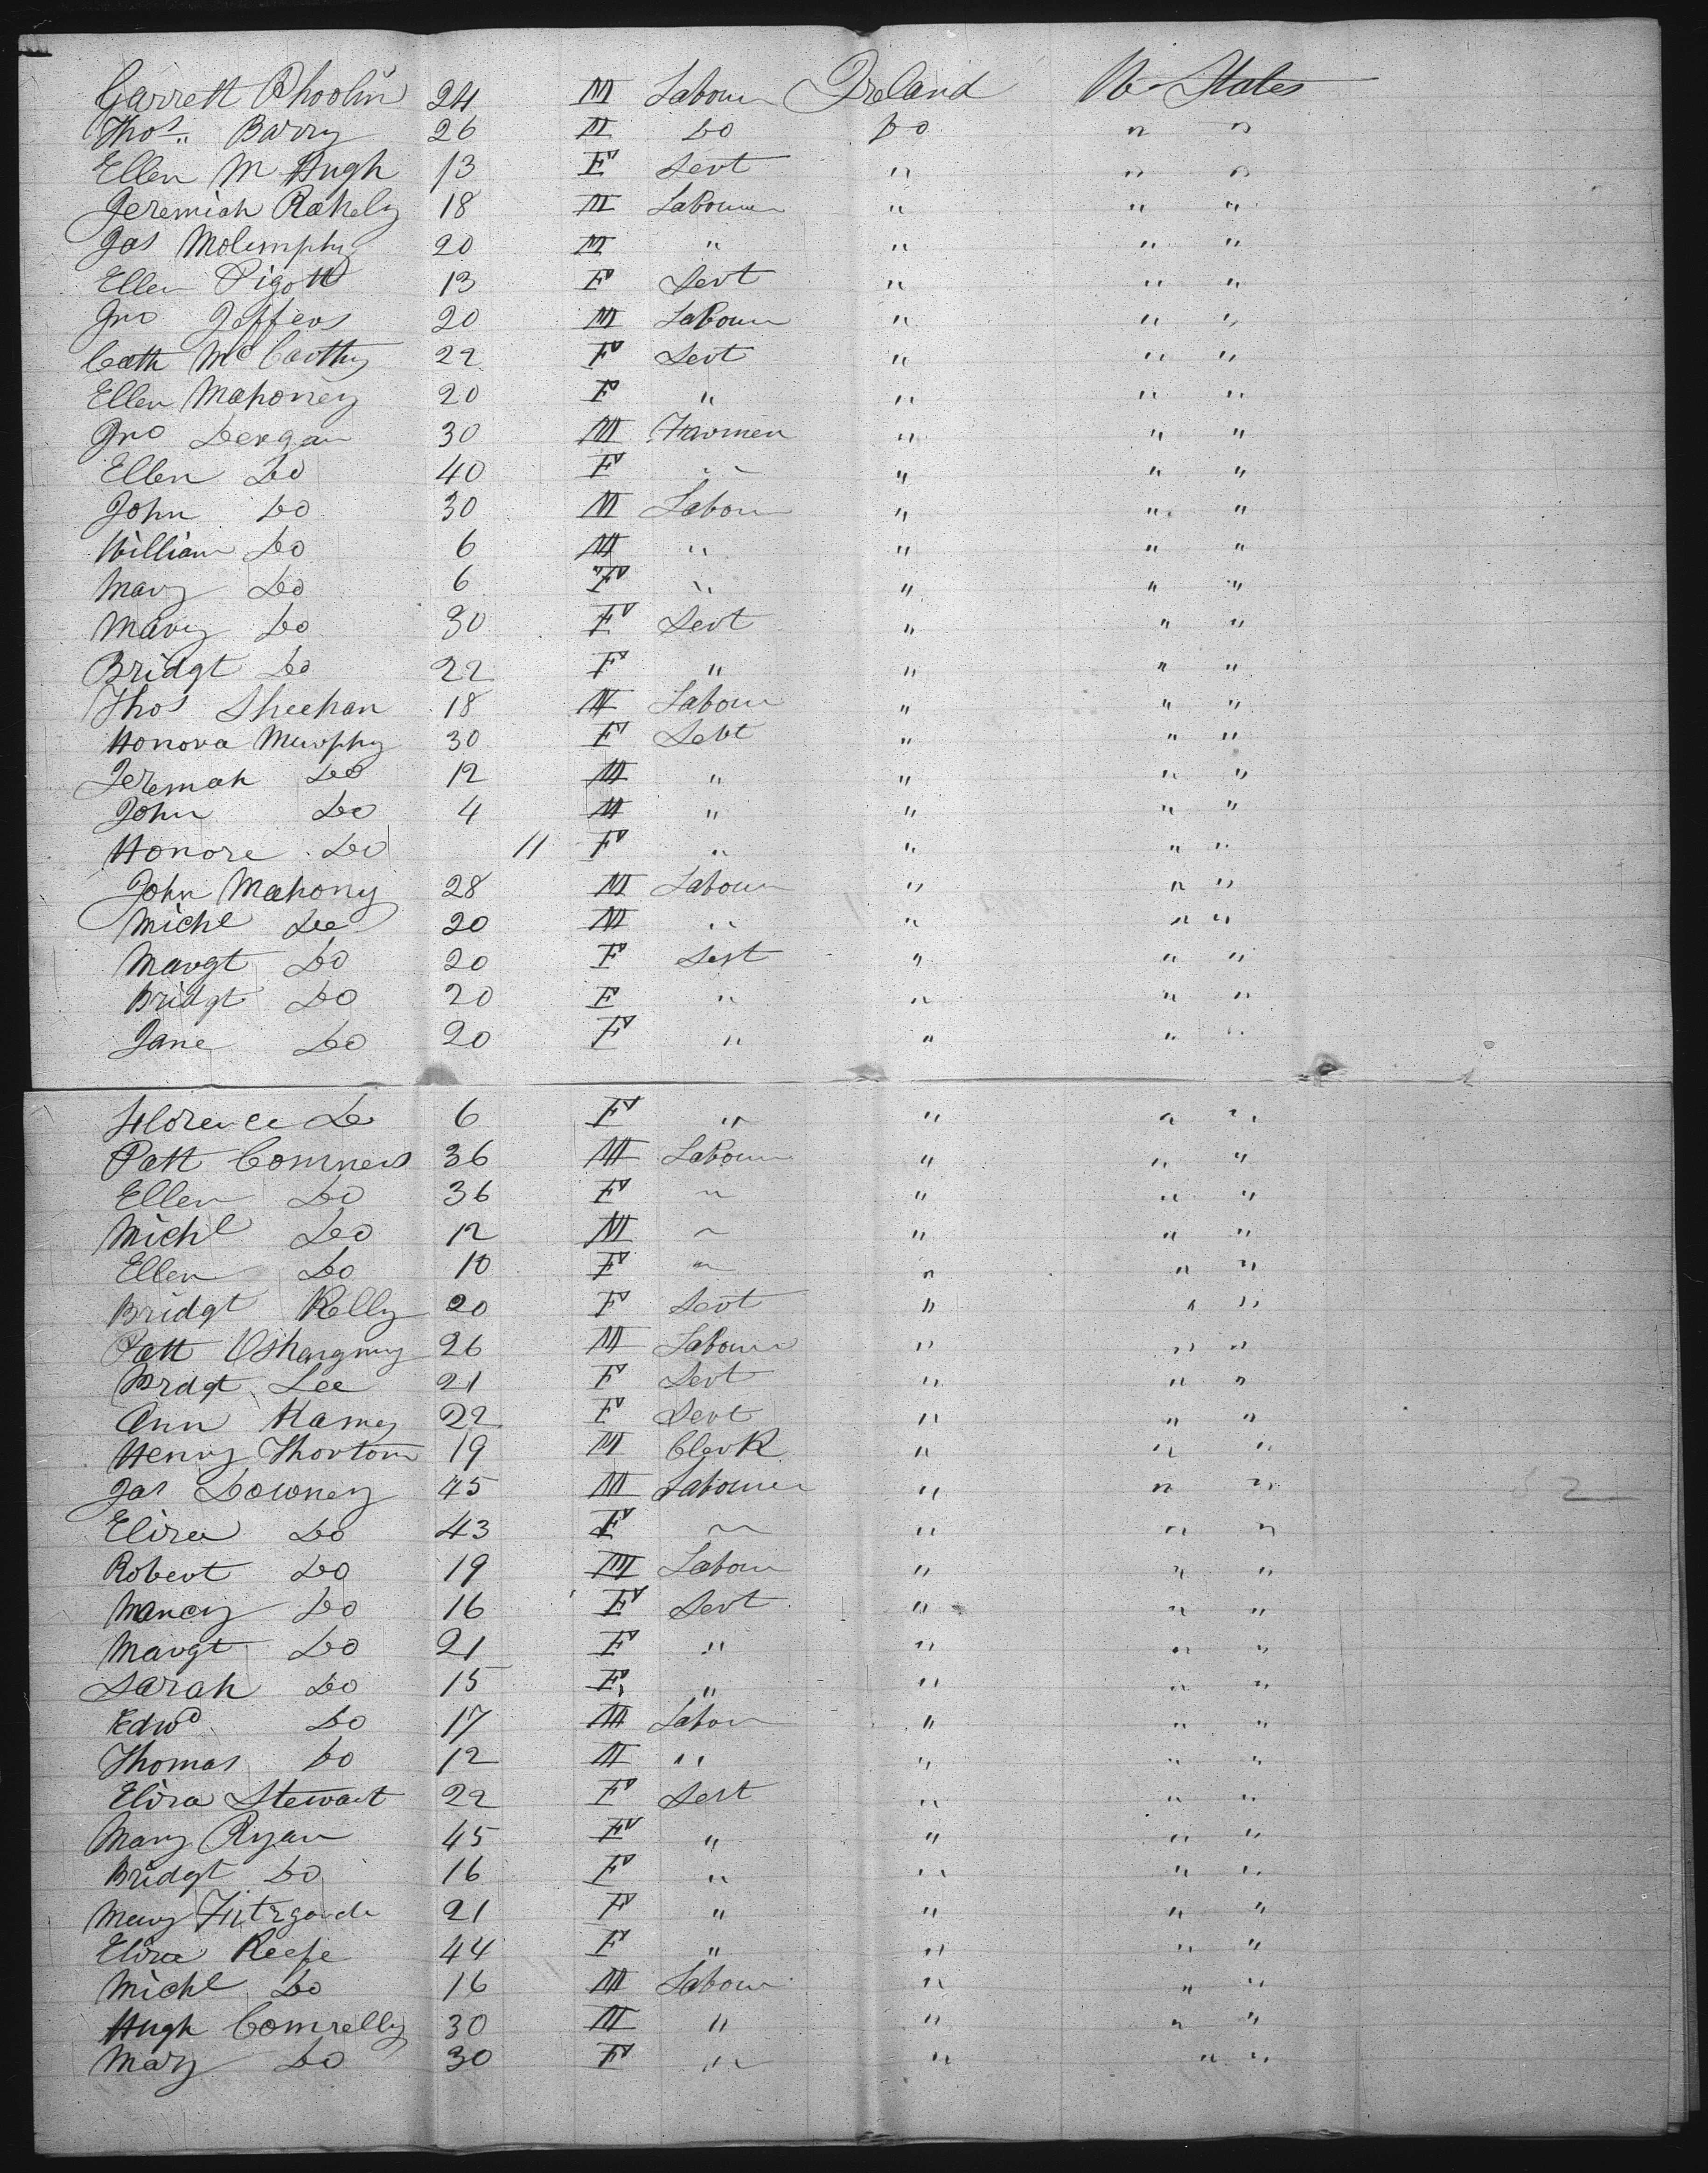 Garrett Phoolin 24 M Labour Ireland U States
Thos. Barry 26 M Do Do " "
Ellen Mc Hugh 13 F Servt " " "
Jeremiah Rahely 18 M Labourer " " "
Jas Molumphy 20 M " " " "
Ellen Pigott 13 F Servt " " "
Jno Jeffers 20 M Labour " " "
Cath McCarthy 22 F Servt " " "
Ellen Mahoney 20 F " " " "
Jno Deegan 30 M Farmer " " "
Ellen Do 40 F " " " "
John Do 30 M Labour " " "
William Do 6 M " " " "
Mary Do 6 F " " " "
Mary Do 30 F Servt " " "
Bridgt Do 22 F " " " "
Thos Sheehan 18 M Labour " " "
Honora Murphy 30 F Servt " " "
Jeremah Do 12 M " " " "
John Do 4 M " " " "
Honore Do 11 F " " " "
John Mahony 28 M Labour " " "
Michl Do 20 M " " " "
Margt Do 20 F Servt " " "
Bridgt Do 20 F " " " "
Jane Do 20 F " " " "
Florence Do 6 F " " " "
Patt Conners 36 M Labour " " "
Ellen Do 36 F " " " "
Michl Do 12 M " " " "
Ellen Do 10 F " " " "
Bridgt Kelly 20 F Servt " " "
Patt 26 M Labour " " "
Brdgt Lee 21 F Servt " " "
Ann Hamey 22 F Servt " " "
Henry Thortom 19 M Clerk " " "
Jas Downey 45 M Labourer " " "
Eliza Do 43 F " " " "
Robert Do 19 M Labour " " "
Nancy Do 16 F Servt " " "
Margt Do 21 F " " " "
Sarah Do 15 F " " " "
Edwd Do 17 M Labour " " "
Thomas Do 12 M " " " "
Eliza Stewart 22 F Servt " " "
Mary Ryan 45 F " " " "
Bridgt Do 16 F " " " "
Mary 21 F " " " "
Eliza Keefe 44 F " " " "
Michl Do 16 M Labour " " "
Hugh Connelly 30 M " " " "
Mary Do 30 F " " " "